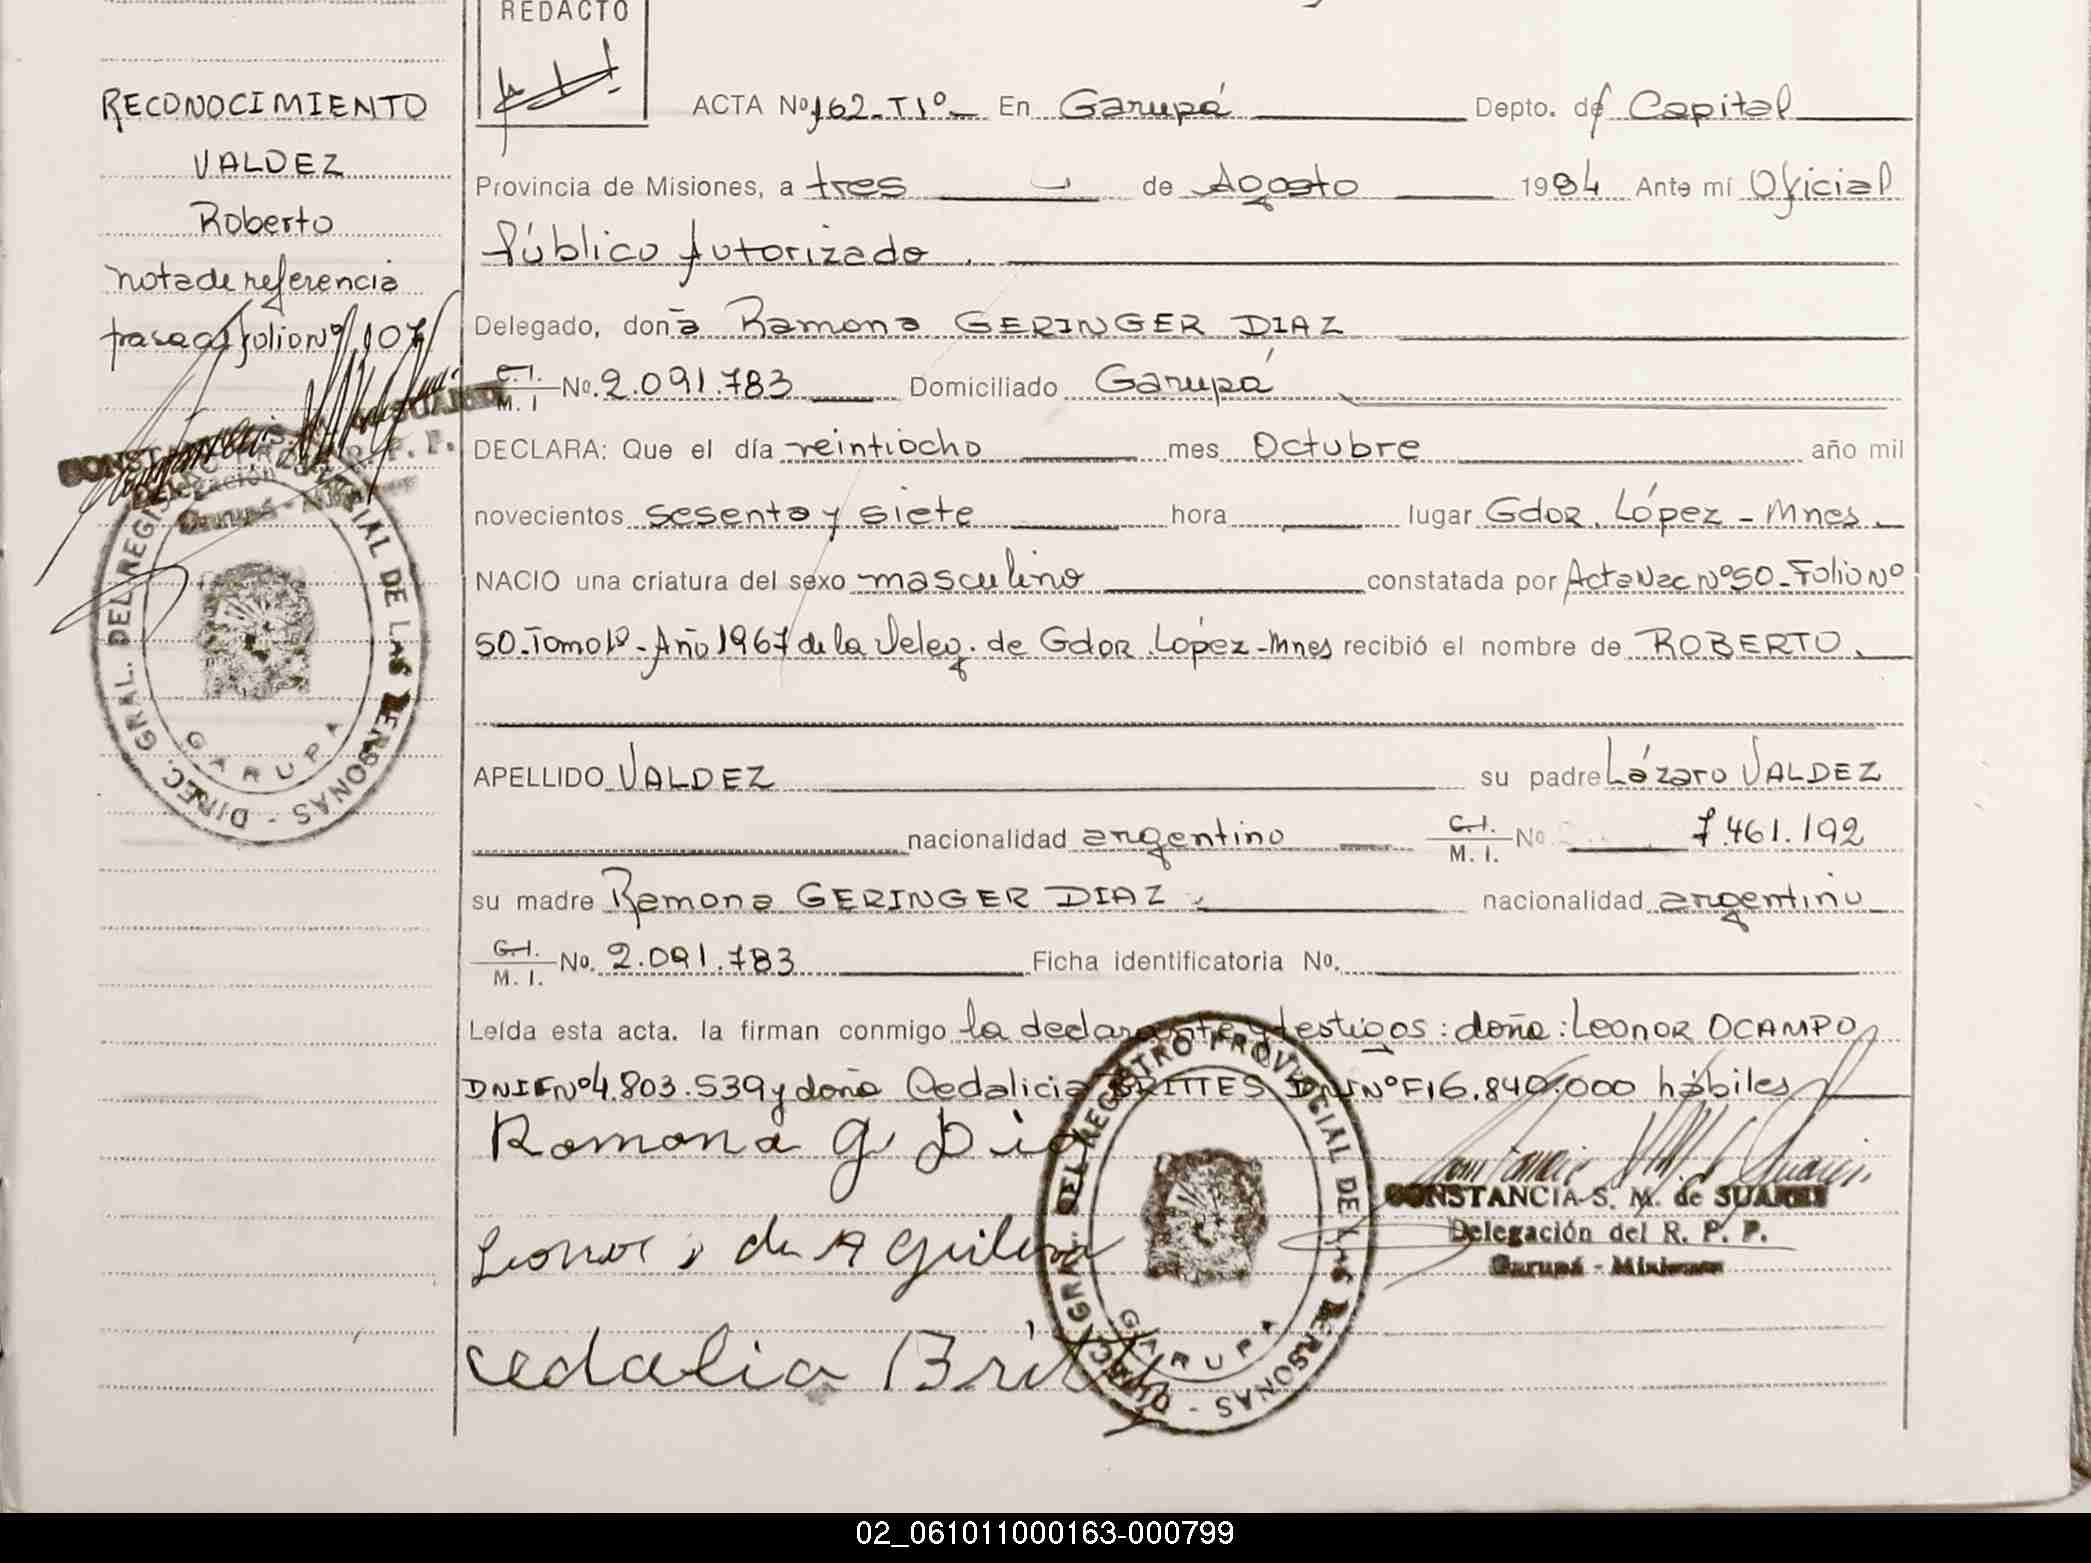 REDACTO
RECONOCIMIENTO
VALDEZ
Roberto
nota de referencia
pasa al folio Nº 107
ACTA Nº 162-T1º- En Garupá Depto. de Capital
Provincia de Misiones, a tres de Agosto 1984 Ante mí Oficial
Público Autorizado.
Delegado, doña Ramona GERINGER DIAZ
C.I. / M. I No. 2.091.783 Domiciliado Garupá
DECLARA: Que el día veintiocho mes Octubre año mil
novecientos sesenta y siete hora lugar Gdor. López - Mnes.
NACIO una criatura del sexo masculino constatada por Acta Nac Nº 50 - Folio Nº
50 - Tomo 1º - Año 1967 de la Deleg. de Gdor. López - Mnes recibió el nombre de ROBERTO.
APELLIDO VALDEZ su padre Lázaro VALDEZ
nacionalidad argentino C.I. / M. I. No 7.461.192
su madre Ramona GERINGER DIAZ nacionalidad argentino
C.I. / M. I. No. 2.091.783 Ficha identificatoria No.
Leída esta acta. la firman conmigo la declarante y testigos: doña: Leonor OCAMPO
DNIF Nº 4.803.539 y doña Cedalicia BRITTES DNI Nº F16.840.000 hábiles
Ramona G Dia
Leonor de Aguilera
cedalia Brit
CONSTANCIA S. M. de SUAREZ
Delegación del R. P. P.
Garupá - Misiones
DIREC. GRAL. DEL REGISTRO PROVINCIAL DE LAS PERSONAS -
GARUPA
DIREC. GRAL. DEL REGISTRO PROVINCIAL DE LAS PERSONAS -
GARUPA
02_061011000163-000799